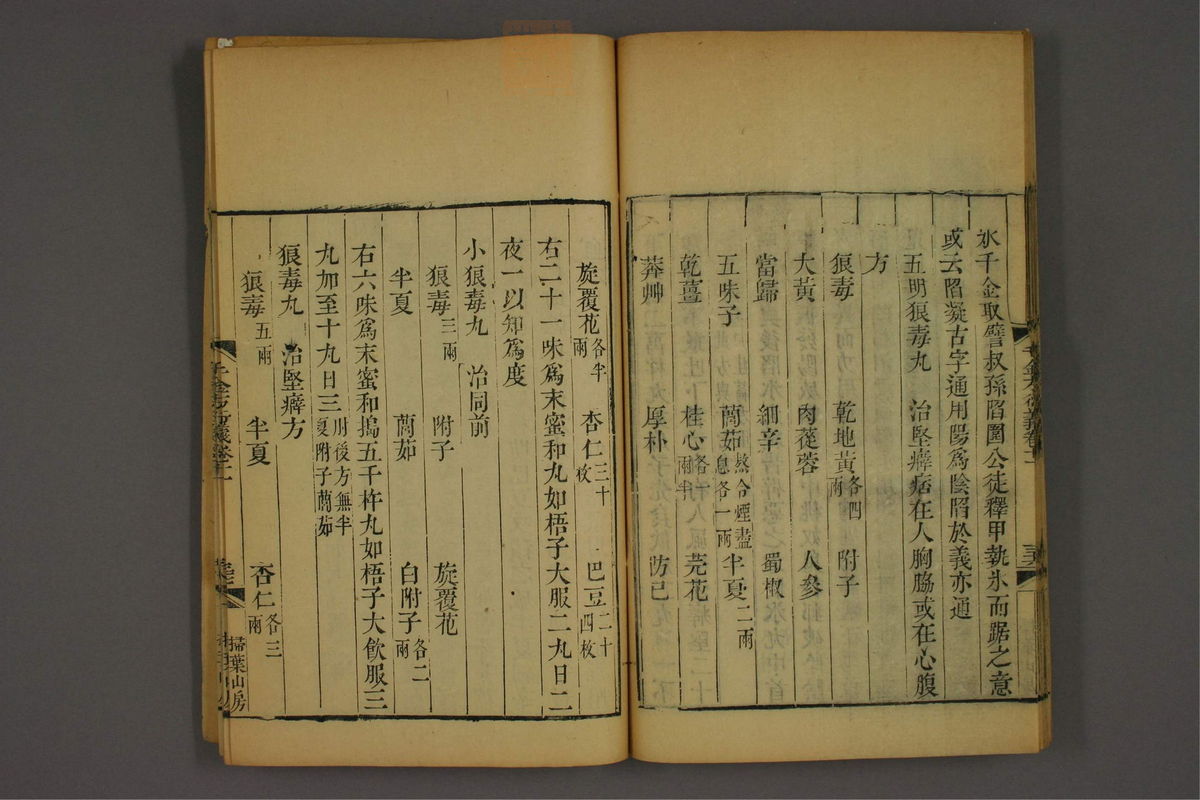 氷千金取譬叔孫䧟圍公徒釋甲執氷而踞之意
或云䧟凝古字通用陽爲陰䧟於義亦通
五明狼毒丸　治堅癖痞在人胸脇或在心腹
方
狼毒　乾地黃各四兩　附子
大黃　肉蓯蓉　人參
當歸　細辛　蜀椒
五味子　䕡茹熬令煙盡息各一兩　半夏二兩
乾薑　桂心各一兩半　芫花
莽艸　厚朴　防己
旋覆花各半兩　杏仁三十枚　巴豆二十四枚
右二十一味爲末蜜和丸如梧子大服二丸日二
夜一以知爲度
小狼毒丸　治同前
狼毒三兩　附子　旋覆花
半夏　䕡茹　白附子各二兩
右六味爲末蜜和搗五千杵丸如梧子大飮服三
丸加至十丸日三肘後方無半夏附子䕡茹
狼毒丸　治堅癖方
狼毒五兩　半夏　杏仁各三兩
千金方衍義卷十一
掃葉山房